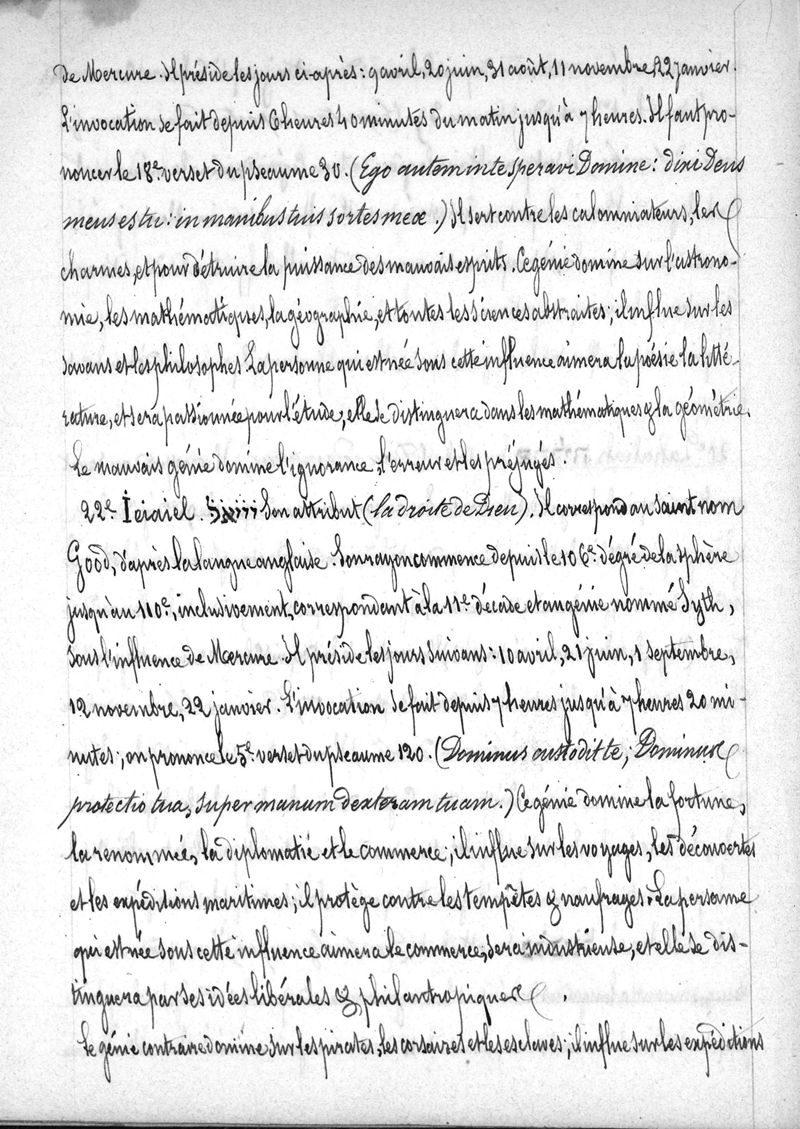 de Mercure. Il préside les jours ci-après: 9 avril, 20 juin, 31 août, 11 novembre, 22 janvier.
L'invocation se fait depuis 6 heures 40 minutes du matin jusqu'à 7 heures. Il faut pro-
noncer le 18e verset du pseaume 30. (Ego autem in te speravi Domine: dixi Deus
meus es tu: in manibus tuis sortes meæ.) Il sert contre les calomniateurs, les
charmes, et pour détruire la puissance des mauvais esprits. Ce génie domine sur l'astrono-
mie, les mathématiques, la géographie, et toutes les sciences abstraites; il influe sur les
savans et les philosophes. La personne qui est née sous cette influence aimera la poésie la litté-
rature, et sera passionnée pour l'étude; elle se distinguera dans les mathématiques & la géométrie.
Le mauvais génie domine l'ignorance, l'erreur et les préjugés.
22e Ieiaiel. יייאל Son attribut (la droite de Dieu). Il correspond au saint nom
Good, d'après la langue anglaise. Son rayon commence depuis le 106e dégré de la sphère
jusqu'au 110e, inclusivement, correspondant à la 11e décade et au génie nommé Syth,
sous l'influence de Mercure. Il préside les jours suivans: 10 avril, 21 juin, 1 septembre,
12 novembre, 22 janvier. L'invocation se fait depuis 7 heures jusqu'à 7 heures 20 mi-
nutes; on prononce le 5e verset du pseaume 120. (Dominus custodit te; Dominus
protectio tua, super manum dexteram tuam.) Ce génie domine la fortune,
la renommée, la diplomatie et le commerce; il influe sur les voyages, les découvertes
et les expéditions maritimes; il protège contre les tempêtes & naufrages. La personne
qui est née sous cette influence aimera le commerce, sera industrieuse, et elle se dis-
tinguera par ses idées libérales & philantropiques.
Le génie contraire domine sur les pirates, les corsaires et les esclaves; il influe sur les expéditions